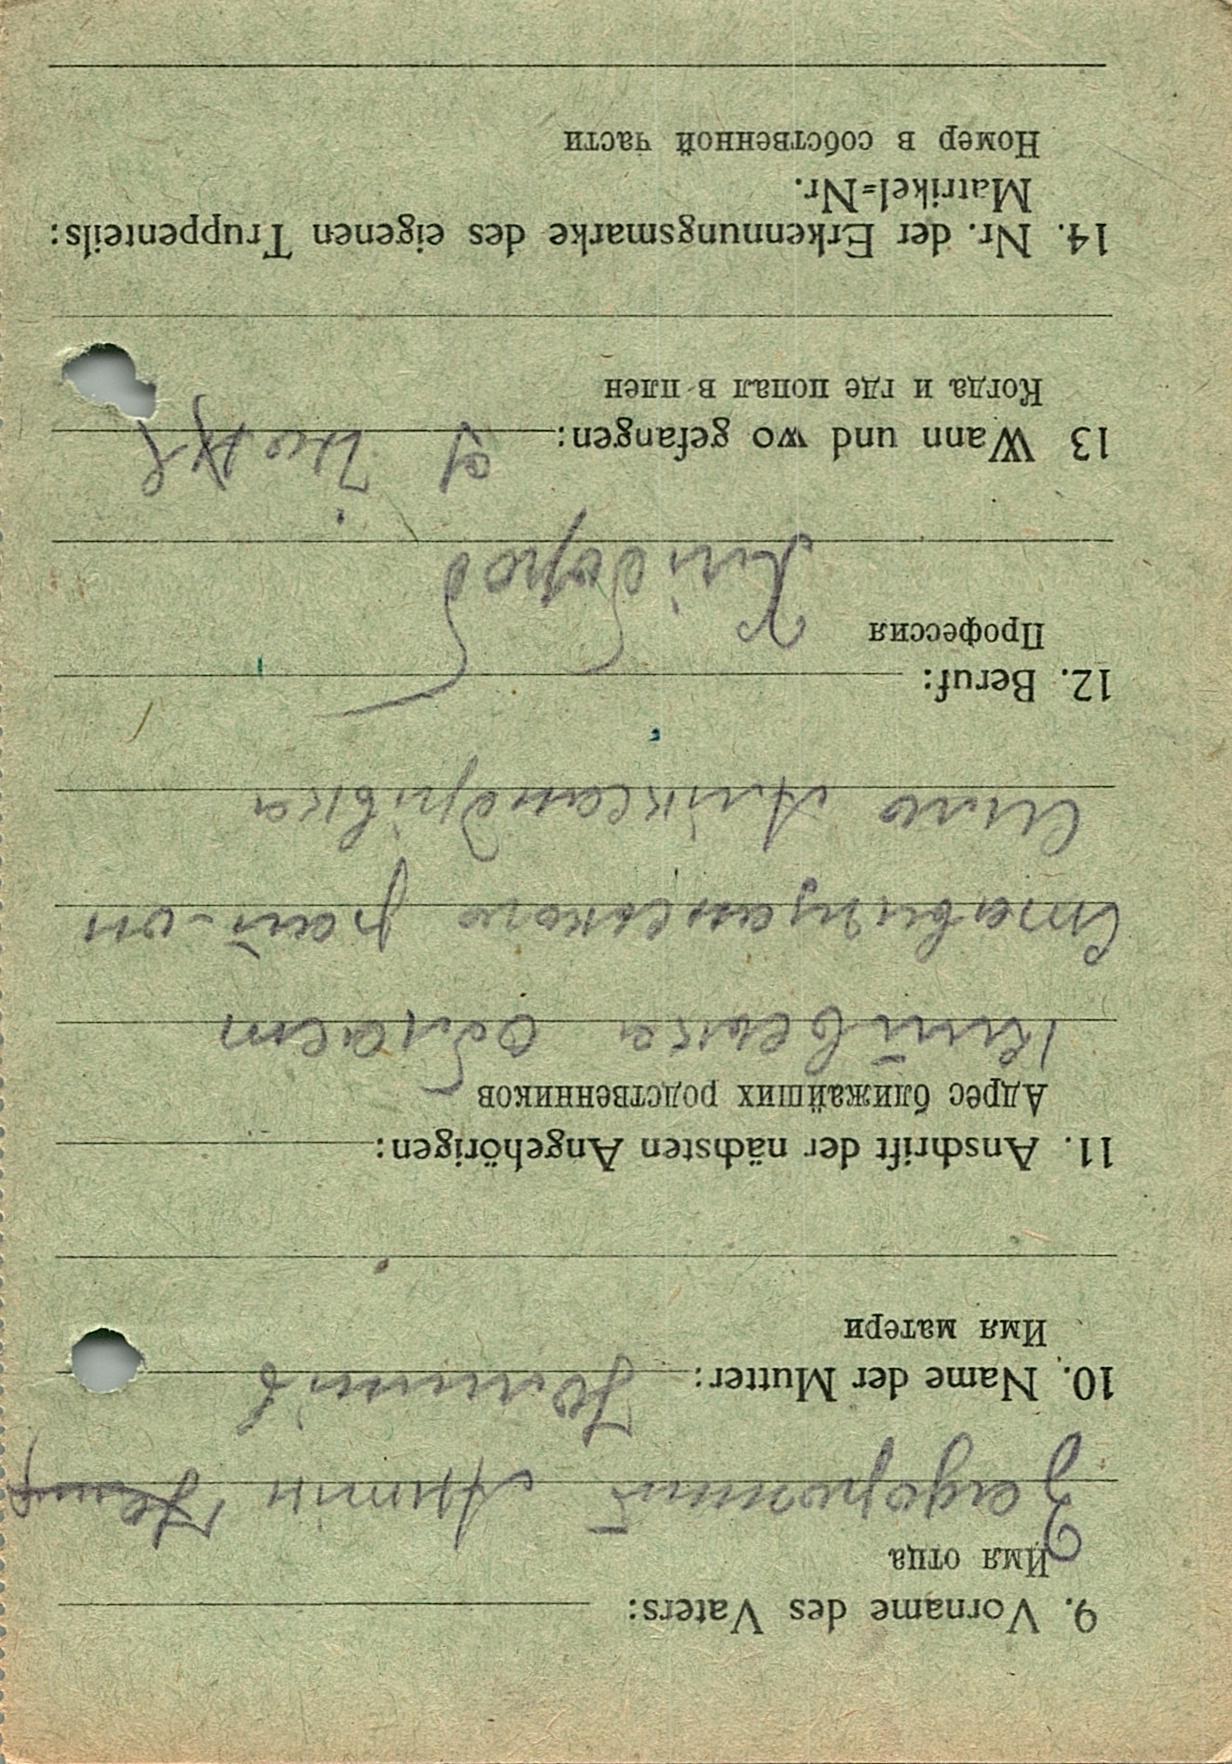 9. Vorname des Vaters:
Имя отца
10. Name der Mutter:
Имя матери
11. Anschrift der nächsten Angehörigen:
Адрес ближайших родственников
Київська област
Ставищанского рай-он
Село
12. Beruf:
Профессия
Хлібороб
13 Wann und wo gefangen:
Когда и где попал в плен
14. Nr. der Erkennungsmarke des eigenen Truppenteils:
Matrikel=Nr.
Номер в собственной части